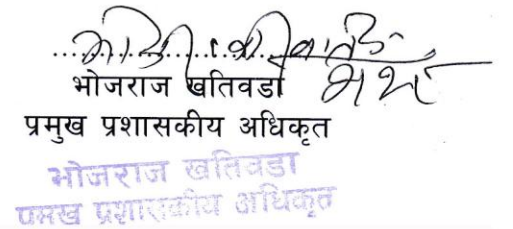 भोजराज खतिवडा
प्रमुख प्रशासकीय अधिकृत
भोजराज खतिवडा
प्रमुख प्रशासकीय अधिकृत